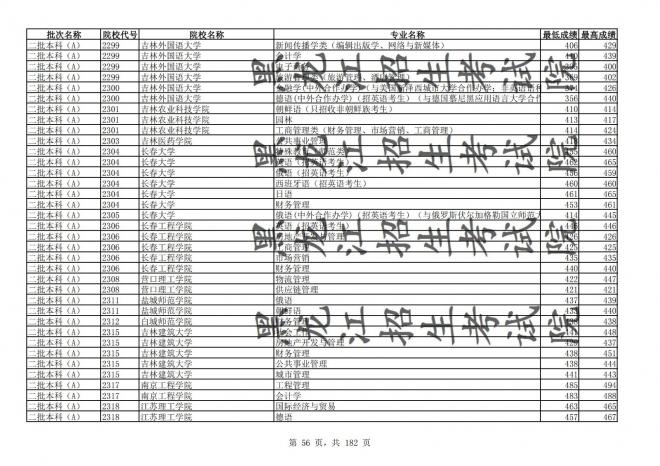 批次名称 院校代号 院校名称 专业名称 最低成绩 最高成绩
二批本科（A） 2299 吉林外国语大学 新闻传播学类（编辑出版学、网络与新媒体） 406 429
二批本科（A） 2299 吉林外国语大学 会计学 439
二批本科（A） 2299 吉林外国语大学 400
二批本科（A） 2299 吉林外国语大学 402
二批本科（A） 2300 吉林外国语大学 426
二批本科（A） 2300 吉林外国语大学 德语(中外合作办学)(招英语考生)（与德国慕尼黑应用语言大学合作 356 440
二批本科（A） 2301 吉林农业科技学院 朝鲜语（只招收非朝鲜族考生） 410 414
二批本科（A） 2301 吉林农业科技学院 园林 413 417
二批本科（A） 2301 吉林农业科技学院 工商管理类（财务管理、市场营销、工商管理） 414 424
二批本科（A） 2303 吉林医药学院 公共事业管理 434
二批本科（A） 2304 长春大学 460
二批本科（A） 2304 长春大学 英语（招英语考生） 462 465
二批本科（A） 2304 长春大学 俄语（招英语考生） 459
二批本科（A） 2304 长春大学 西班牙语（招英语考生） 460 460
二批本科（A） 2304 长春大学 日语 461 465
二批本科（A） 2304 长春大学 财务管理 453 461
二批本科（A） 2305 长春大学 俄语(中外合作办学)(招英语考生)（与俄罗斯伏尔加格勒国立师范大 414 445
二批本科（A） 2306 长春工程学院 英语（招英语考生） 446
二批本科（A） 2306 长春工程学院 房地产开发与管理 426
二批本科（A） 2306 长春工程学院 工商管理 425
二批本科（A） 2306 长春工程学院 市场营销 435 435
二批本科（A） 2306 长春工程学院 财务管理 440 440
二批本科（A） 2308 营口理工学院 物流管理 422 447
二批本科（A） 2308 营口理工学院 供应链管理 421 421
二批本科（A） 2311 盐城师范学院 俄语 437 439
二批本科（A） 2311 盐城师范学院 朝鲜语 440
二批本科（A） 2312 白城师范学院 财务管理 438
二批本科（A） 2315 吉林建筑大学 社会工作 448
二批本科（A） 2315 吉林建筑大学 房地产开发与管理 429 437
二批本科（A） 2315 吉林建筑大学 财务管理 438 451
二批本科（A） 2315 吉林建筑大学 公共事业管理 438 444
二批本科（A） 2315 吉林建筑大学 城市管理 441 443
二批本科（A） 2317 南京工程学院 工程管理 485 494
二批本科（A） 2317 南京工程学院 会计学 483 488
二批本科（A） 2318 江苏理工学院 国际经济与贸易 463 465
二批本科（A） 2318 江苏理工学院 德语 457 467
黑龙江招生考试院
黑龙江招生考试院
黑龙江招生考试院
第 56 页，共 182 页